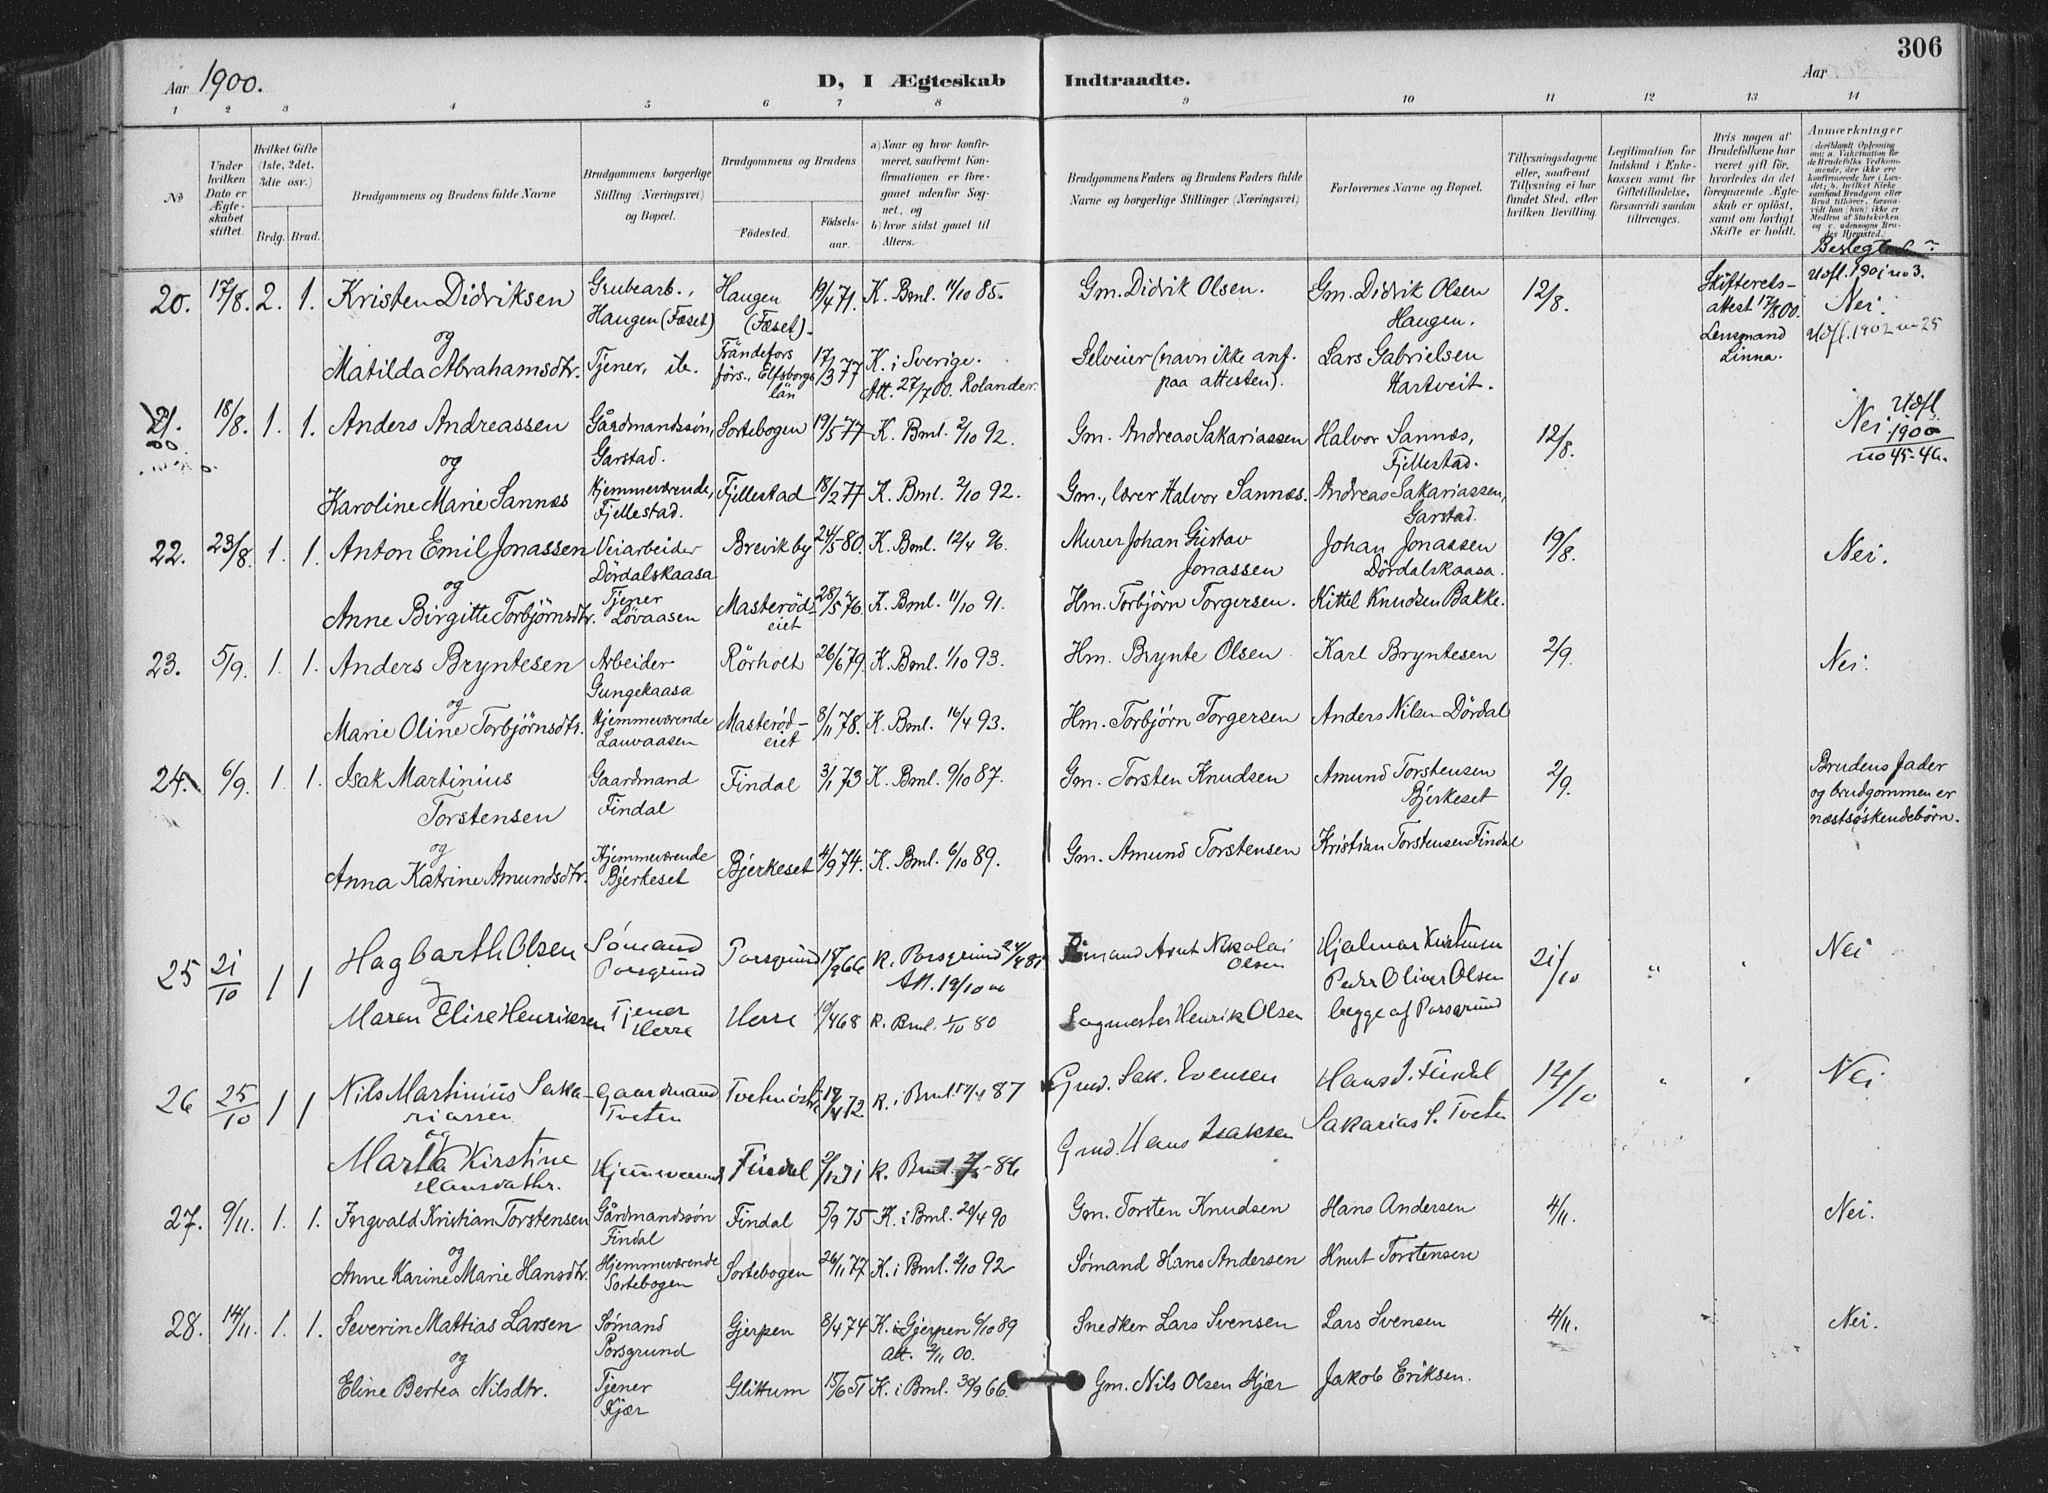 306
Aar 1900.
D, I Ægteskab Indtraadte.
Aar
1 2 3 4 5 6 7 8 9 10 11 12 13 14
No
Under hvilken Dato er Ægteskabet stiftet.
Hvilket Gifte (1ste, 2det, 3die osv.)
Brdg. Brud.
Brudgommens og Brudens fulde Navne
Brudgommens borgerlige Stilling (Næringsvei) og Bopæl.
Brudgommens og Brudens
Födested.
Födselsaar.
a) Naar og hvor konfirmeret, saafremt Konfirmationen er foregaaet udenfor Sognet, og
b) hvor sidst gaaet til Alters.
Brudgommens Faders og Brudens Faders fulde Navne og borgerlige Stillinger (Næringsvei)
Forlovernes Navne og Bopæl.
Tillysningsdagene eller, saafremt Tillysning ei har fundet Sted, efter hvilken Bevilling.
Legitimation for Indskud i Enkekassen samt for Giftetilladelse, forsaavidt saadan tiltrænges.
Hvis nogen af Brudefolkene har været gift før, hvorledes da det foregaaende Ægteskab er opløst, samt om lovligt Skifte er holdt.
Anmærkninger
20. 17/8. 2. 1. Kristen Didriksen Grubearb., Haugen (Fæset) Haugen (Fæset). 19/4 71. K. Bml. 11/10 85. Gm. Didrik Olsen. Gm. Didrik Olsen Haugen. 12/8. Skifteretsattest 17/8 00. Lensmand Linna. Udfl. 1901 no 3. Nei. Udfl. 1902 no 25
og
Matilda Abrahamsdtr. Tjener, ib. Frändefors förs., Elfsborgs län 17/3 77 K. i Sverige. Att. 27/7 00. Rolander. Selveier (navn ikke anf. paa attesten). Lars Gabrielsen Hartveit.
21. 18/8. 1. 1. Anders Andreassen Gårdmandssøn, Garstad. Sortebogen 19/5 77 K. Bml. 2/10 92. Gm. Andreas Sakariassen Halvor Sannæs, Fjellestad. 12/8. Nei Udfl 1900 no 45-46.
og
Karoline Marie Sannæs Hjemmeværende, Fjellestad. Fjellestad 18/2 77 K. Bml. 2/10 92. Gm., lærer Halvor Sannæs. Andreas Sakariassen, Garstad.
22. 23/8. 1. 1. Anton Emil Jonassen Veiarbeider Dördalskaasa Brevik by 24/5 80. K. Bml. 12/4 96. Murer Johan Gustav Jonassen Johan Jonassen Dördalskaasa. 19/8. Nei.
og
Anne Birgitte Torbjörnsdtr. Tjener Lövaasen Masterödeiet 28/5 76. K. Bml. 11/10 91. Hm. Torbjörn Torgersen. Kittel Knudsen Bakke.
23. 5/9. 1. 1. Anders Bryntesen Arbeider Gungekaasa Rörholt 26/6 79. K. Bml. 1/10 93. Hm. Brynte Olsen Karl Bryntesen 2/9. Nei.
og
Marie Oline Torbjörnsdtr. Hjemmeværende Lauvaasen Masterödeiet 8/11 78. K. Bml. 16/4 93. Hm. Torbjörn Torgersen Anders Nilsen Dördal
24. 6/9. 1. 1. Isak Martinius Torstensen Gaardmand Findal Findal 3/1 73 K. Bml. 9/10 87. Gm. Torsten Knudsen Amund Torstensen Bjerkeset 2/9. Brudens fader og brudgommen er næstsøskendebörn.
og
Anna Katrine Amundsdtr. Hjemmeværende Bjerkeset Bjerkeset 4/9 74. K. Bml. 6/10 89. Gm. Amund Torstensen Kristian Torstensen Findal
25 21/10 1 1 Hagbarth Olsen Sømand Porsgrund Porsgrund 18/9 66 K. Porsgrund Att. 19/10 00 Sømand Arnt Nikolai Olsen Hjalmar Kristensen Peder Oliver Olsen begge af Porsgrund 21/10 Nei
Maren Elise Henriksen Tjener Herre Herre 10/4 68 K. Bml. 80 Sagmester Henrik Olsen
26 25/10 1 1 Nils Martinius Sakariassen Gaardmand Tveten 18/4 72 K. i Bml. 17/4 87 Gmd. Sak. Evensen Hans I. Findal Sakarias S. Tveten 14/10 Nei
og
Marta Kirstine Hansdathr. Hjemmeværend Findal K. Bml. 86 Gmd. Hans Isaksen
27. 9/11. 1. 1. Ingvald Kristian Torstensen Gårdmandssøn Findal Findal 5/9 75 K. i Bml. 20/4 90 Gm. Torsten Knudsen Hans Andersen 4/11. Nei.
og
Anne Karine Marie Hansdtr. Hjemmeværende Sortebogen Sortebogen 26/11 77 K. i Bml. 2/10 92 Sømand Hans Andersen Knut Torstensen
28. 14/11. 1. 1. Severin Mattias Larsen Sømand Porsgrund Gjerpen 8/4 74 K. i Gjerpen 6/10 89 Att. 2/11 00. Snedker Lars Svensen Lars Svensen 4/11. Nei.
og
Eline Bertea Nilsdtr. Tjener Kjær Glittum 15/6 51 K. i Bml. 30/9 66. Gm. Nils Olsen Kjær Jakob Eriksen.